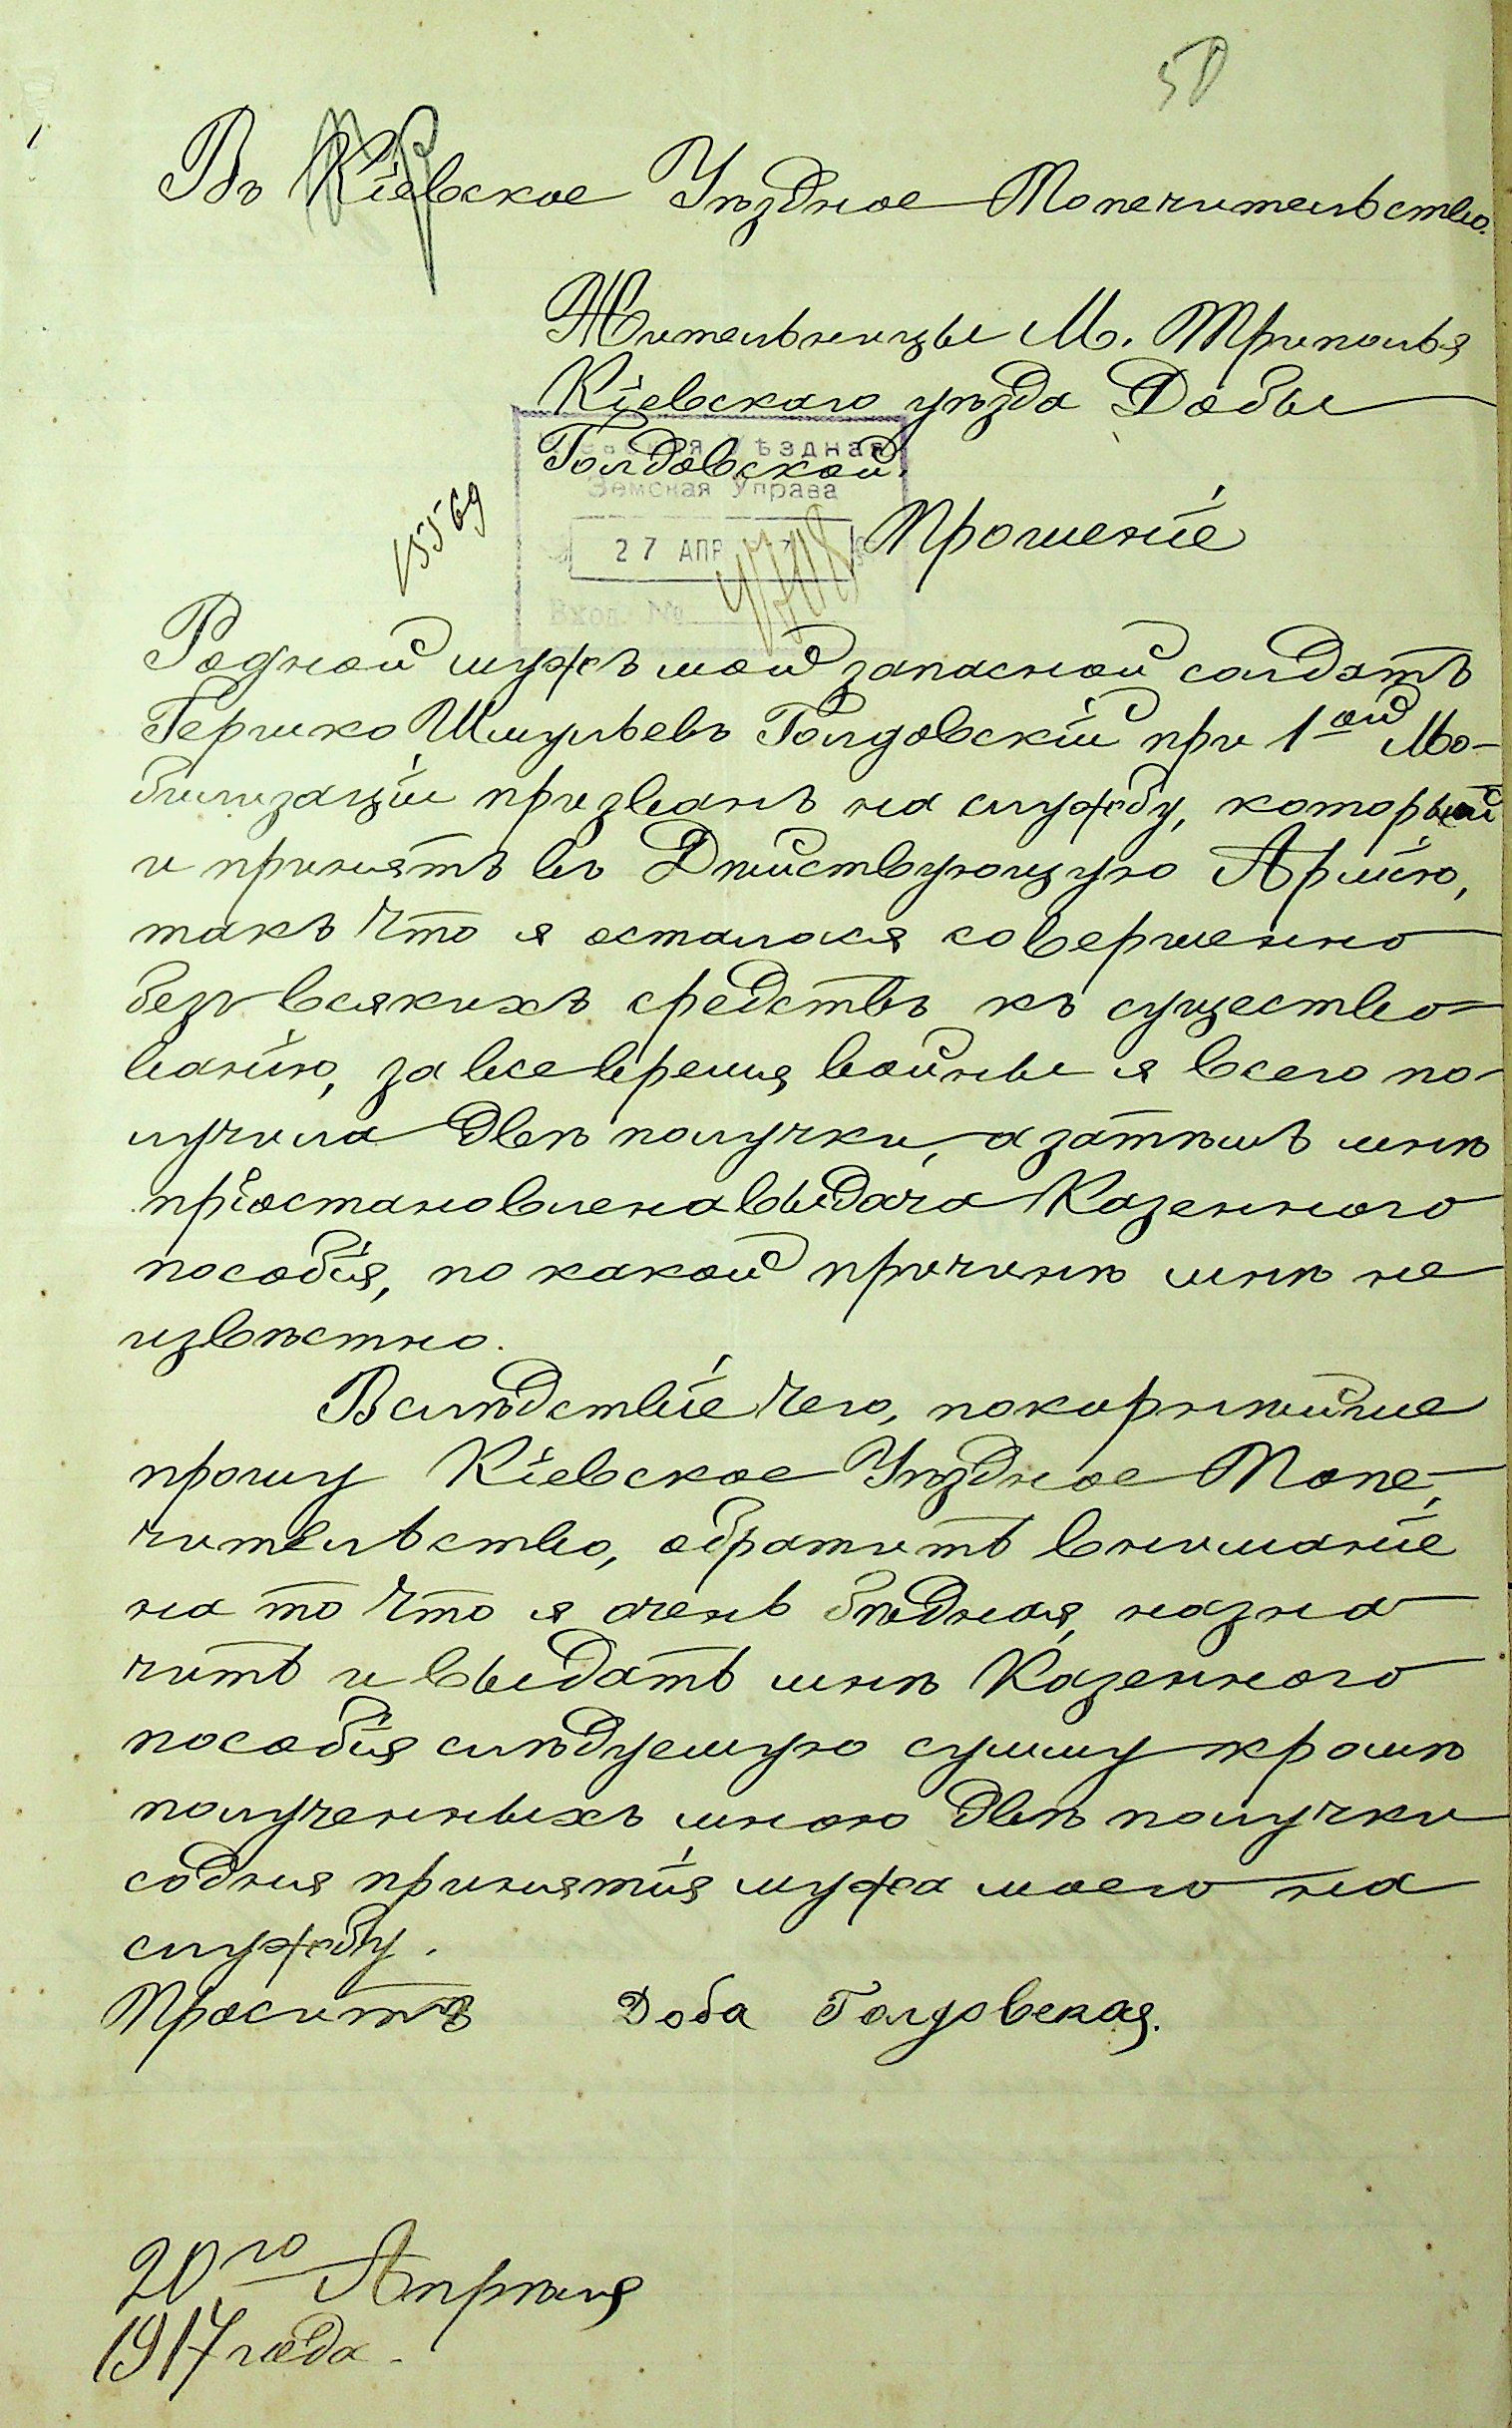 50
Въ Кіевское Уѣздное Попечительство.
Жительницы М. Триполья
Кіевскаго уѣзда Добы
Голдовской.
уѣздная
Земская Управа
27 АПР
Вход. №
15569
Прошеніе
Родной мужъ мой запасной солдатъ
Гершко Шмульевъ Голдовскій при 1ой Мо-
билизаціи призванъ на службу, который
и принятъ въ Дѣйствующую Армію,
такъ что я осталася совершенно
безъ всякихъ средствъ къ существо-
ванію, за все время войны я всего по-
лучила двѣ получки, а затѣмъ мнѣ
пріостановлена выдача Казенного
пособія, по какой причинѣ мнѣ не
извѣстно.
Вслѣдствіе чего, покорнѣйше
прошу Кіевское Уѣздное Попе-
чительство, обратить вниманіе
на то что я очень бѣдная, назна-
чить и выдать мнѣ Казенного
пособія слѣдуемую сумму кромѣ
полученныхъ мною двѣ получки
со дня принятія мужа моего на
службу.
Проситъ Доба Голдовская.
20го Апрѣля
1917 года.